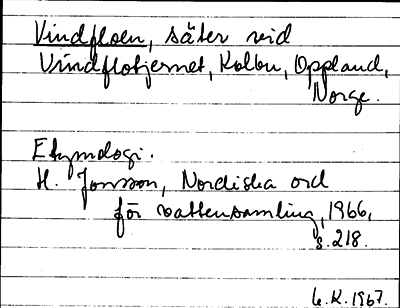 Vindfloen, säter vid
Vindflotjernet, Kolbu, Oppland,
Norge.
Etymologi.
H. Jonsson, Nordiska ord
för vattensamling, 1966,
s. 218.
1967.